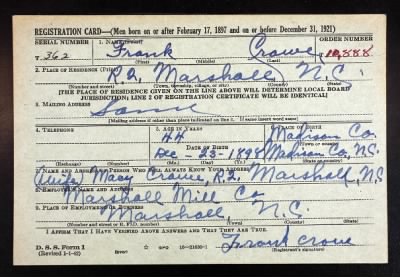 REGISTRATION CARD—(Men born on or after February 17, 1897 and on or before December 31, 1921)
SERIAL NUMBER 1. NAME (Print) ORDER NUMBER
T 362 Frank Crowe 10,888
(First) (Middle) (Last)
2. PLACE OF RESIDENCE (Print)
R.2. Marshall, N.C.
(Number and street) (Town, township, village, or city) (County) (State)
[THE PLACE OF RESIDENCE GIVEN ON THE LINE ABOVE WILL DETERMINE LOCAL BOARD
JURISDICTION; LINE 2 OF REGISTRATION CERTIFICATE WILL BE IDENTICAL]
3. MAILING ADDRESS
Same
[Mailing address if other than place indicated on line 2. If same insert word same]
4. TELEPHONE 5. AGE IN YEARS 6. PLACE OF BIRTH
44 Madison Co.
DATE OF BIRTH (Town or county)
1898 Madison Co, N.C.
(Exchange) (Number) (Mo.) (Day) (Yr.) (State or country)
7. NAME AND ADDRESS OF PERSON WHO WILL ALWAYS KNOW YOUR ADDRESS
Mae Crowe, R.2, Marshall, N.C.
8. EMPLOYER'S NAME AND ADDRESS
Marshall Mill Co
9. PLACE OF EMPLOYMENT OR BUSINESS
Marshall, N.C.
(Number and street or R. F. D. number) (Town) (County) (State)
I AFFIRM THAT I HAVE VERIFIED ABOVE ANSWERS AND THAT THEY ARE TRUE.
D. S. S. Form 1
(Revised 1-1-42) GPO 16—21630-1 Frank Crowe
(Registrant's signature)